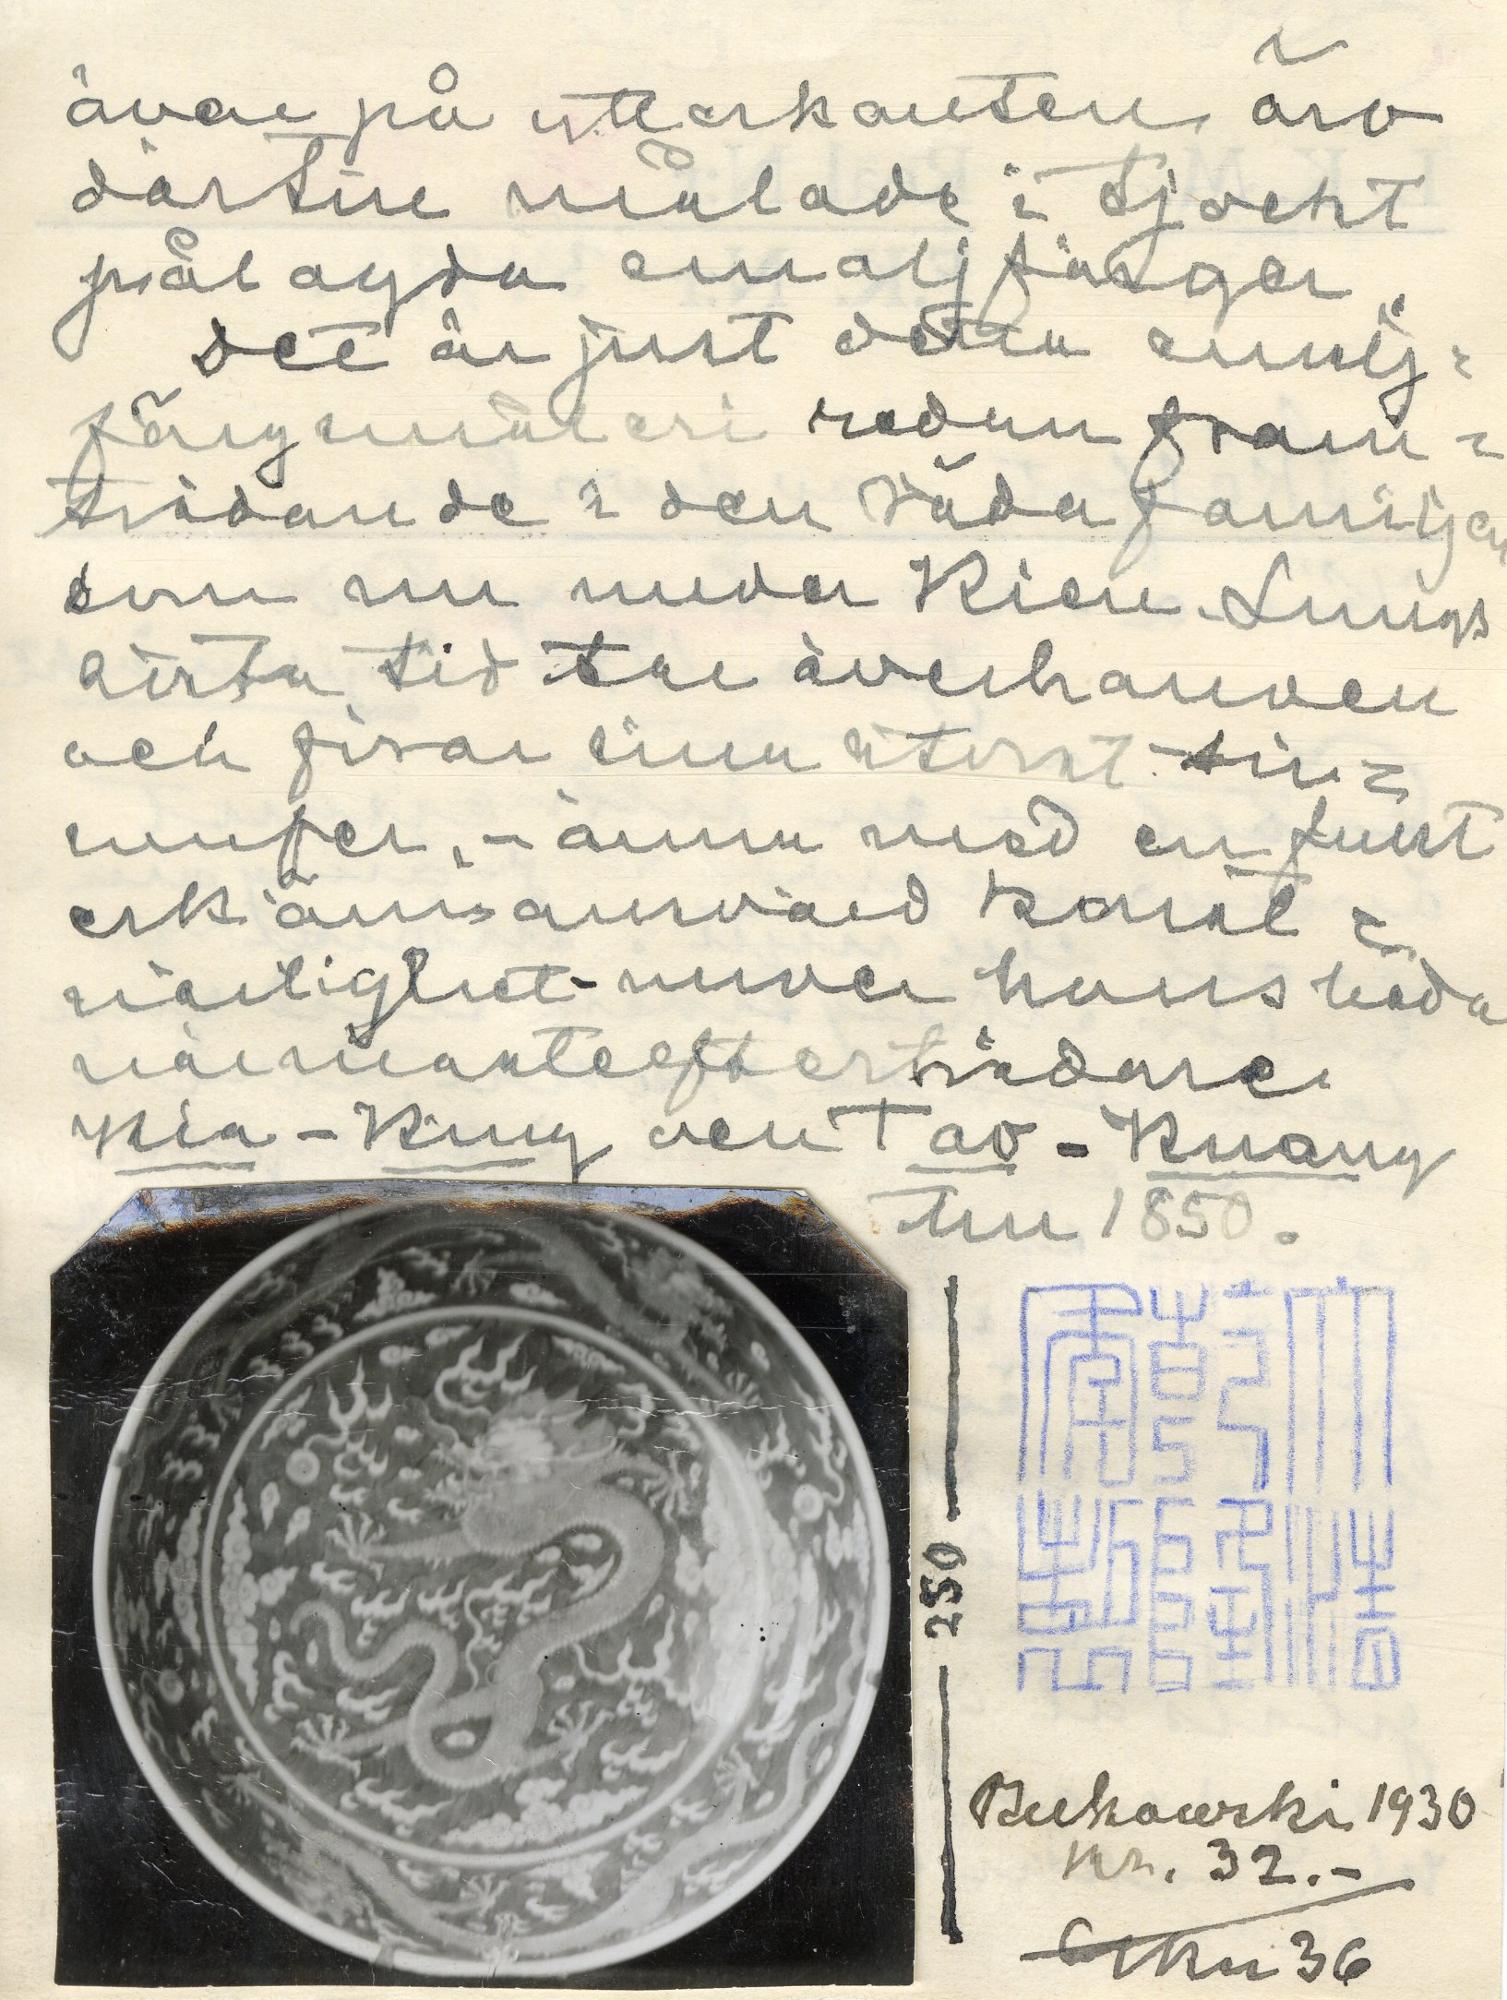 även på ytterkanten, äro
därtill målade i tjockt
pålagda emaljfärger.
det är just detta emalj=
färgmåleri redan fram=
trädande i den röda familjen
som nu under Kien-Lungs
sista tid tar överhanden
och firar sina största tri=
umfer, - ännu med en fullt
erkännansvärd konst=
närlighet - under hans båda
närmaste efterträdare
Kia-King och Tao-Kuang
till 1850.
250
大清乾
隆年製
Bukowski 1930
Kr. 32.-
36